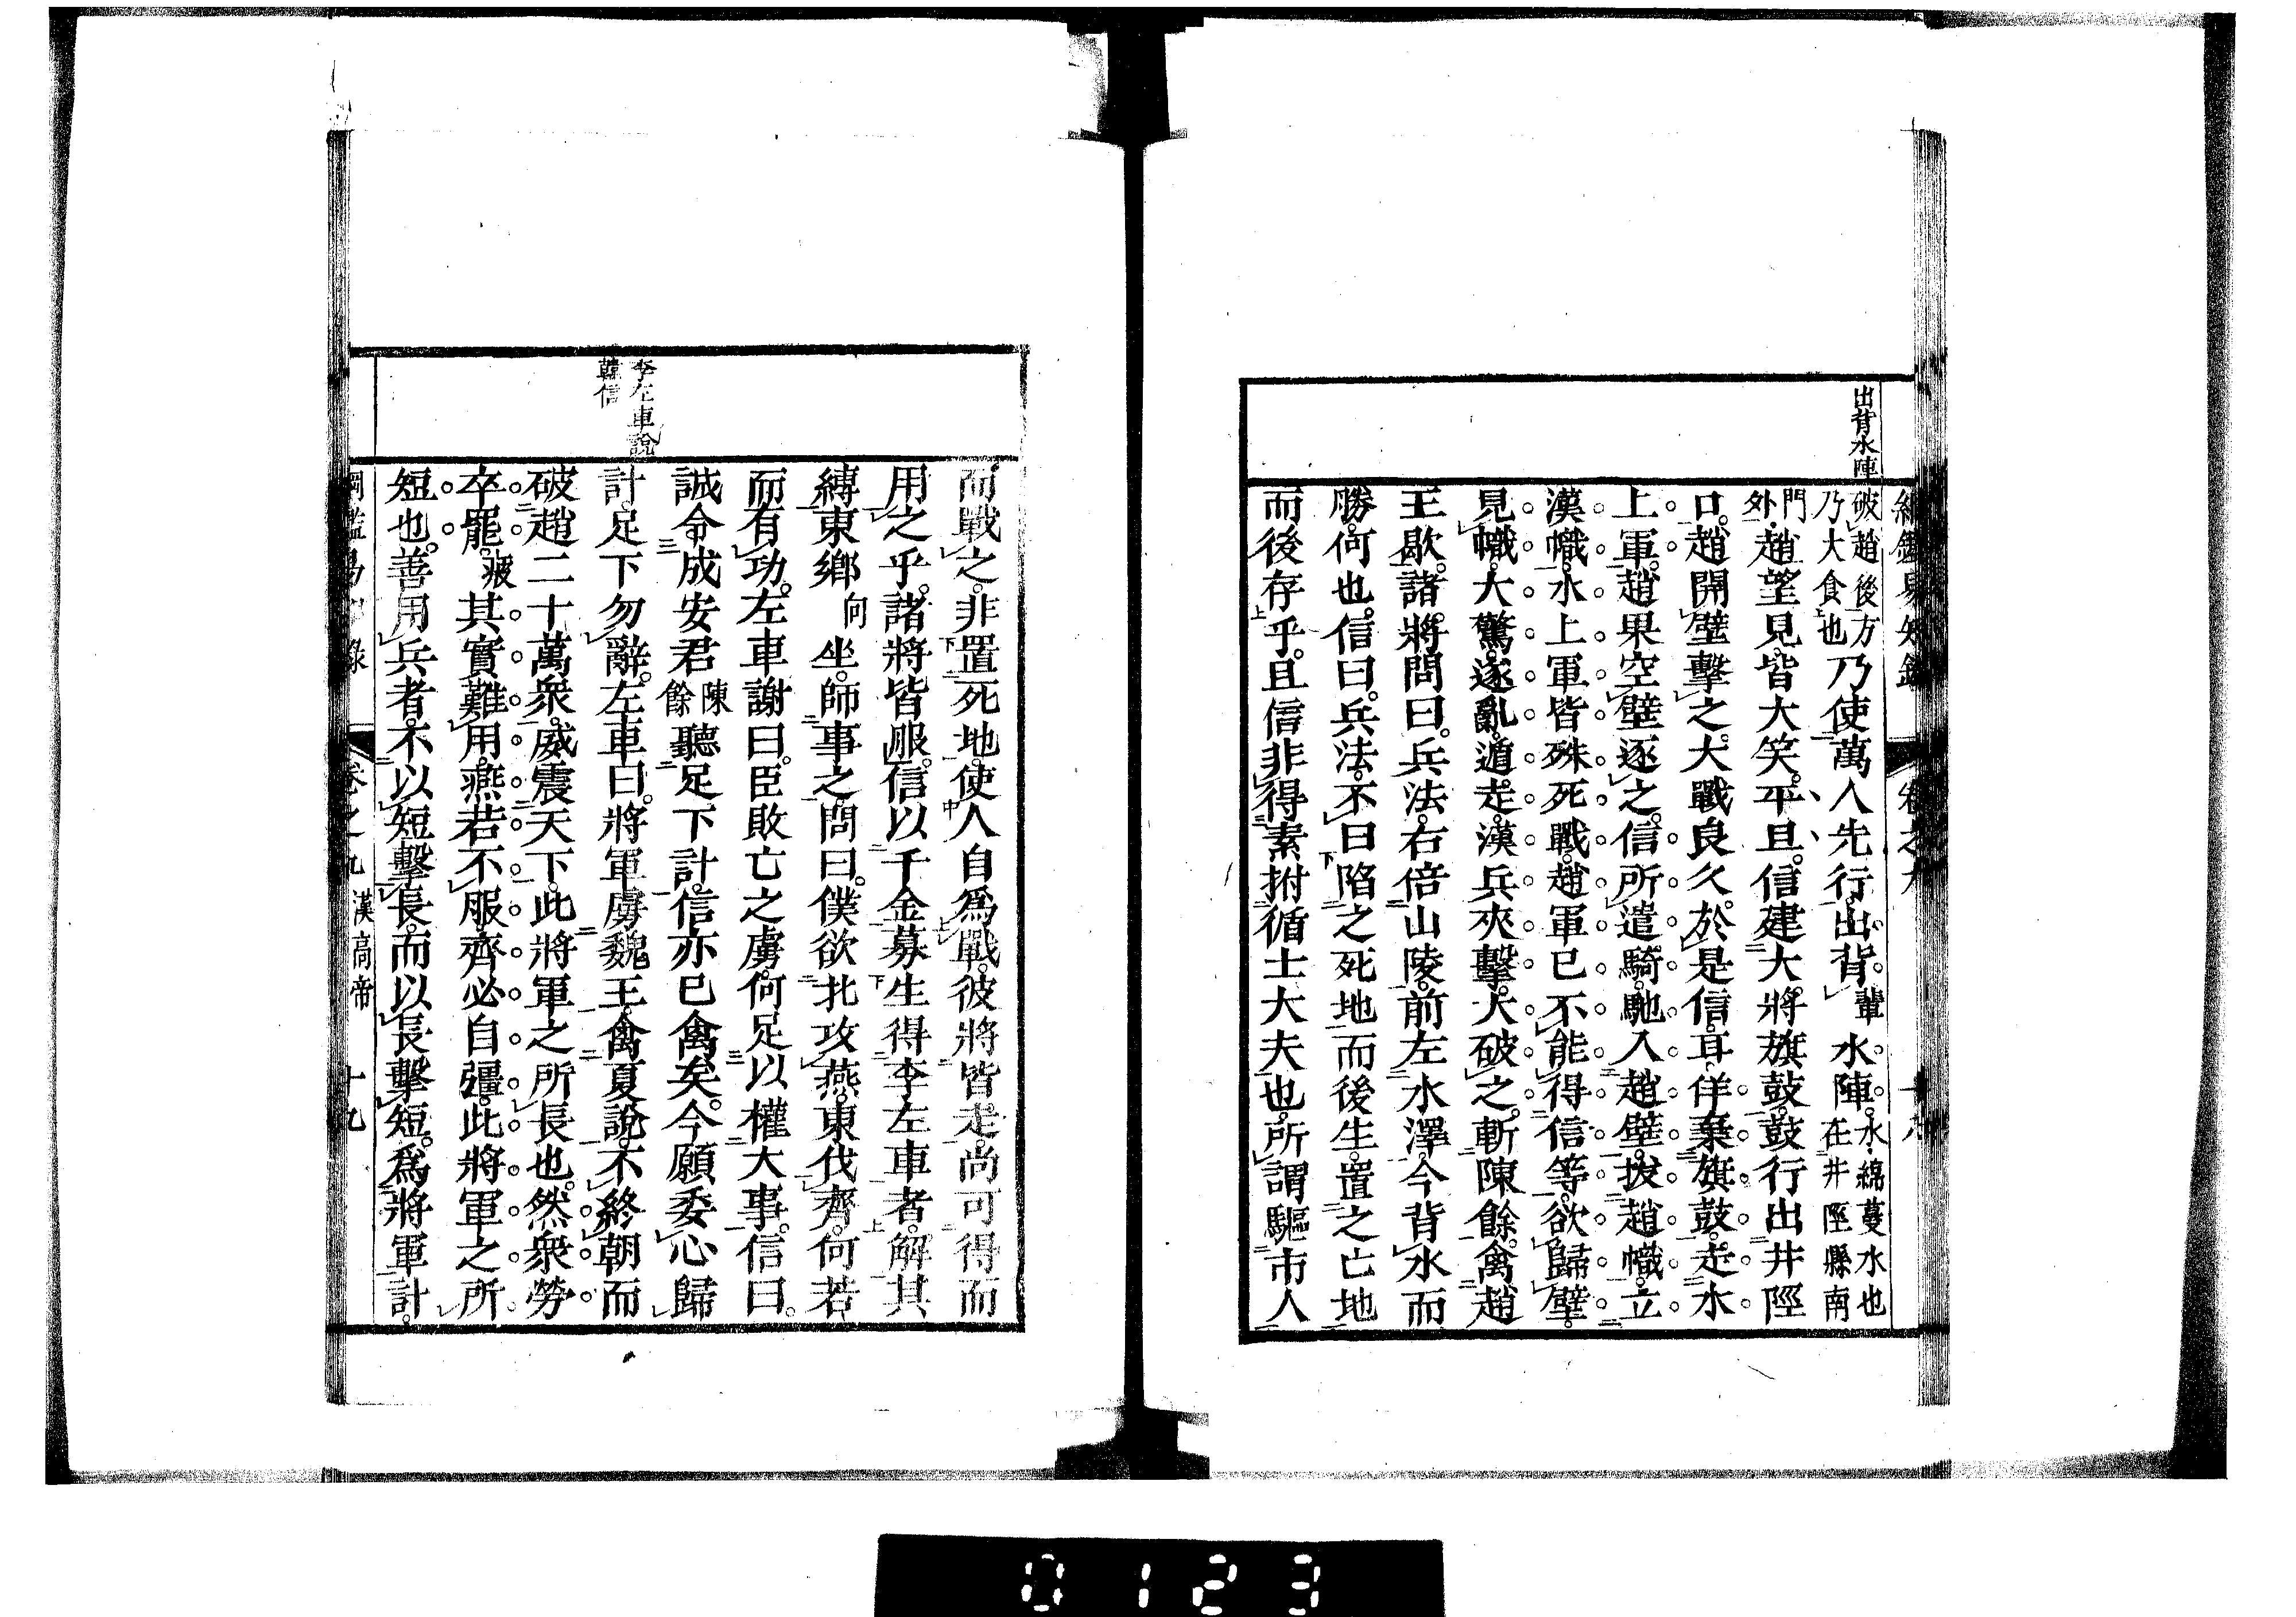 出背水陣
綱鑑易知錄 卷之九 十八
破趙後方
乃大食也
乃使萬人先行出背
輩
水陣
水綿蔓水也
在井陘縣南
門
外趙望見皆大笑平旦信建大將旗鼓鼓行出井陘
口趙開壁擊之大戰良久於是信耳佯棄旗鼓走水
上軍趙果空壁逐之信所遣騎馳入趙壁拔趙幟立
漢幟水上軍皆殊死戰趙軍已不能得信等欲歸壁
見幟大驚遂亂遁走漢兵夾擊大破之斬陳餘禽趙
王歇諸將問曰兵法右倍山陵前左水澤今背水而
勝何也信曰兵法不曰陷之死地而後生置之亡地
而後存乎且信非得素拊循士大夫也所謂驅市人
而戰之非置死地使人自爲戰彼將皆走尚可得而
用之乎諸將皆服信以千金募生得李左車者解其
縛東鄉
向
坐師事之問曰僕欲北攻燕東伐齊何若
而有功左車謝曰臣敗亡之虜何足以權大事信曰
誠令成安君
陳
餘
聽足下計信亦已禽矣今願委心歸
李左車說
韓信
計足下勿辭左車曰將軍虜魏王禽夏說不終朝而
破趙二十萬衆威震天下此將軍之所長也然衆勞
卒罷
疲
其實難用燕若不服齊必自彊此將軍之所
短也善用兵者不以短擊長而以長擊短爲將軍計
綱鑑易知錄 卷之九 漢高帝 十九
0123